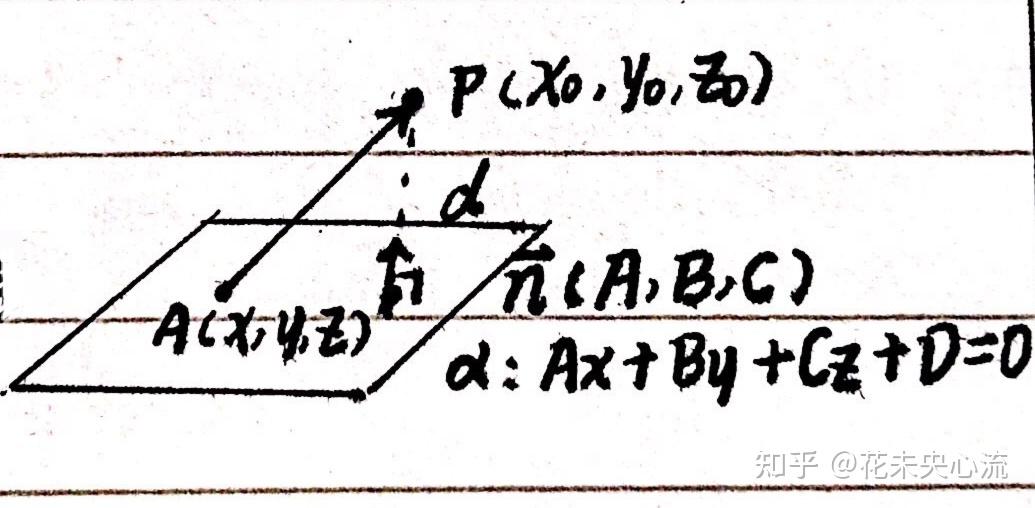 P(x₀, y₀, z₀)
d
n⃗
n⃗(A, B, C)
A(x, y, z)
α: Ax+By+Cz+D=0
知乎 @花未央心流